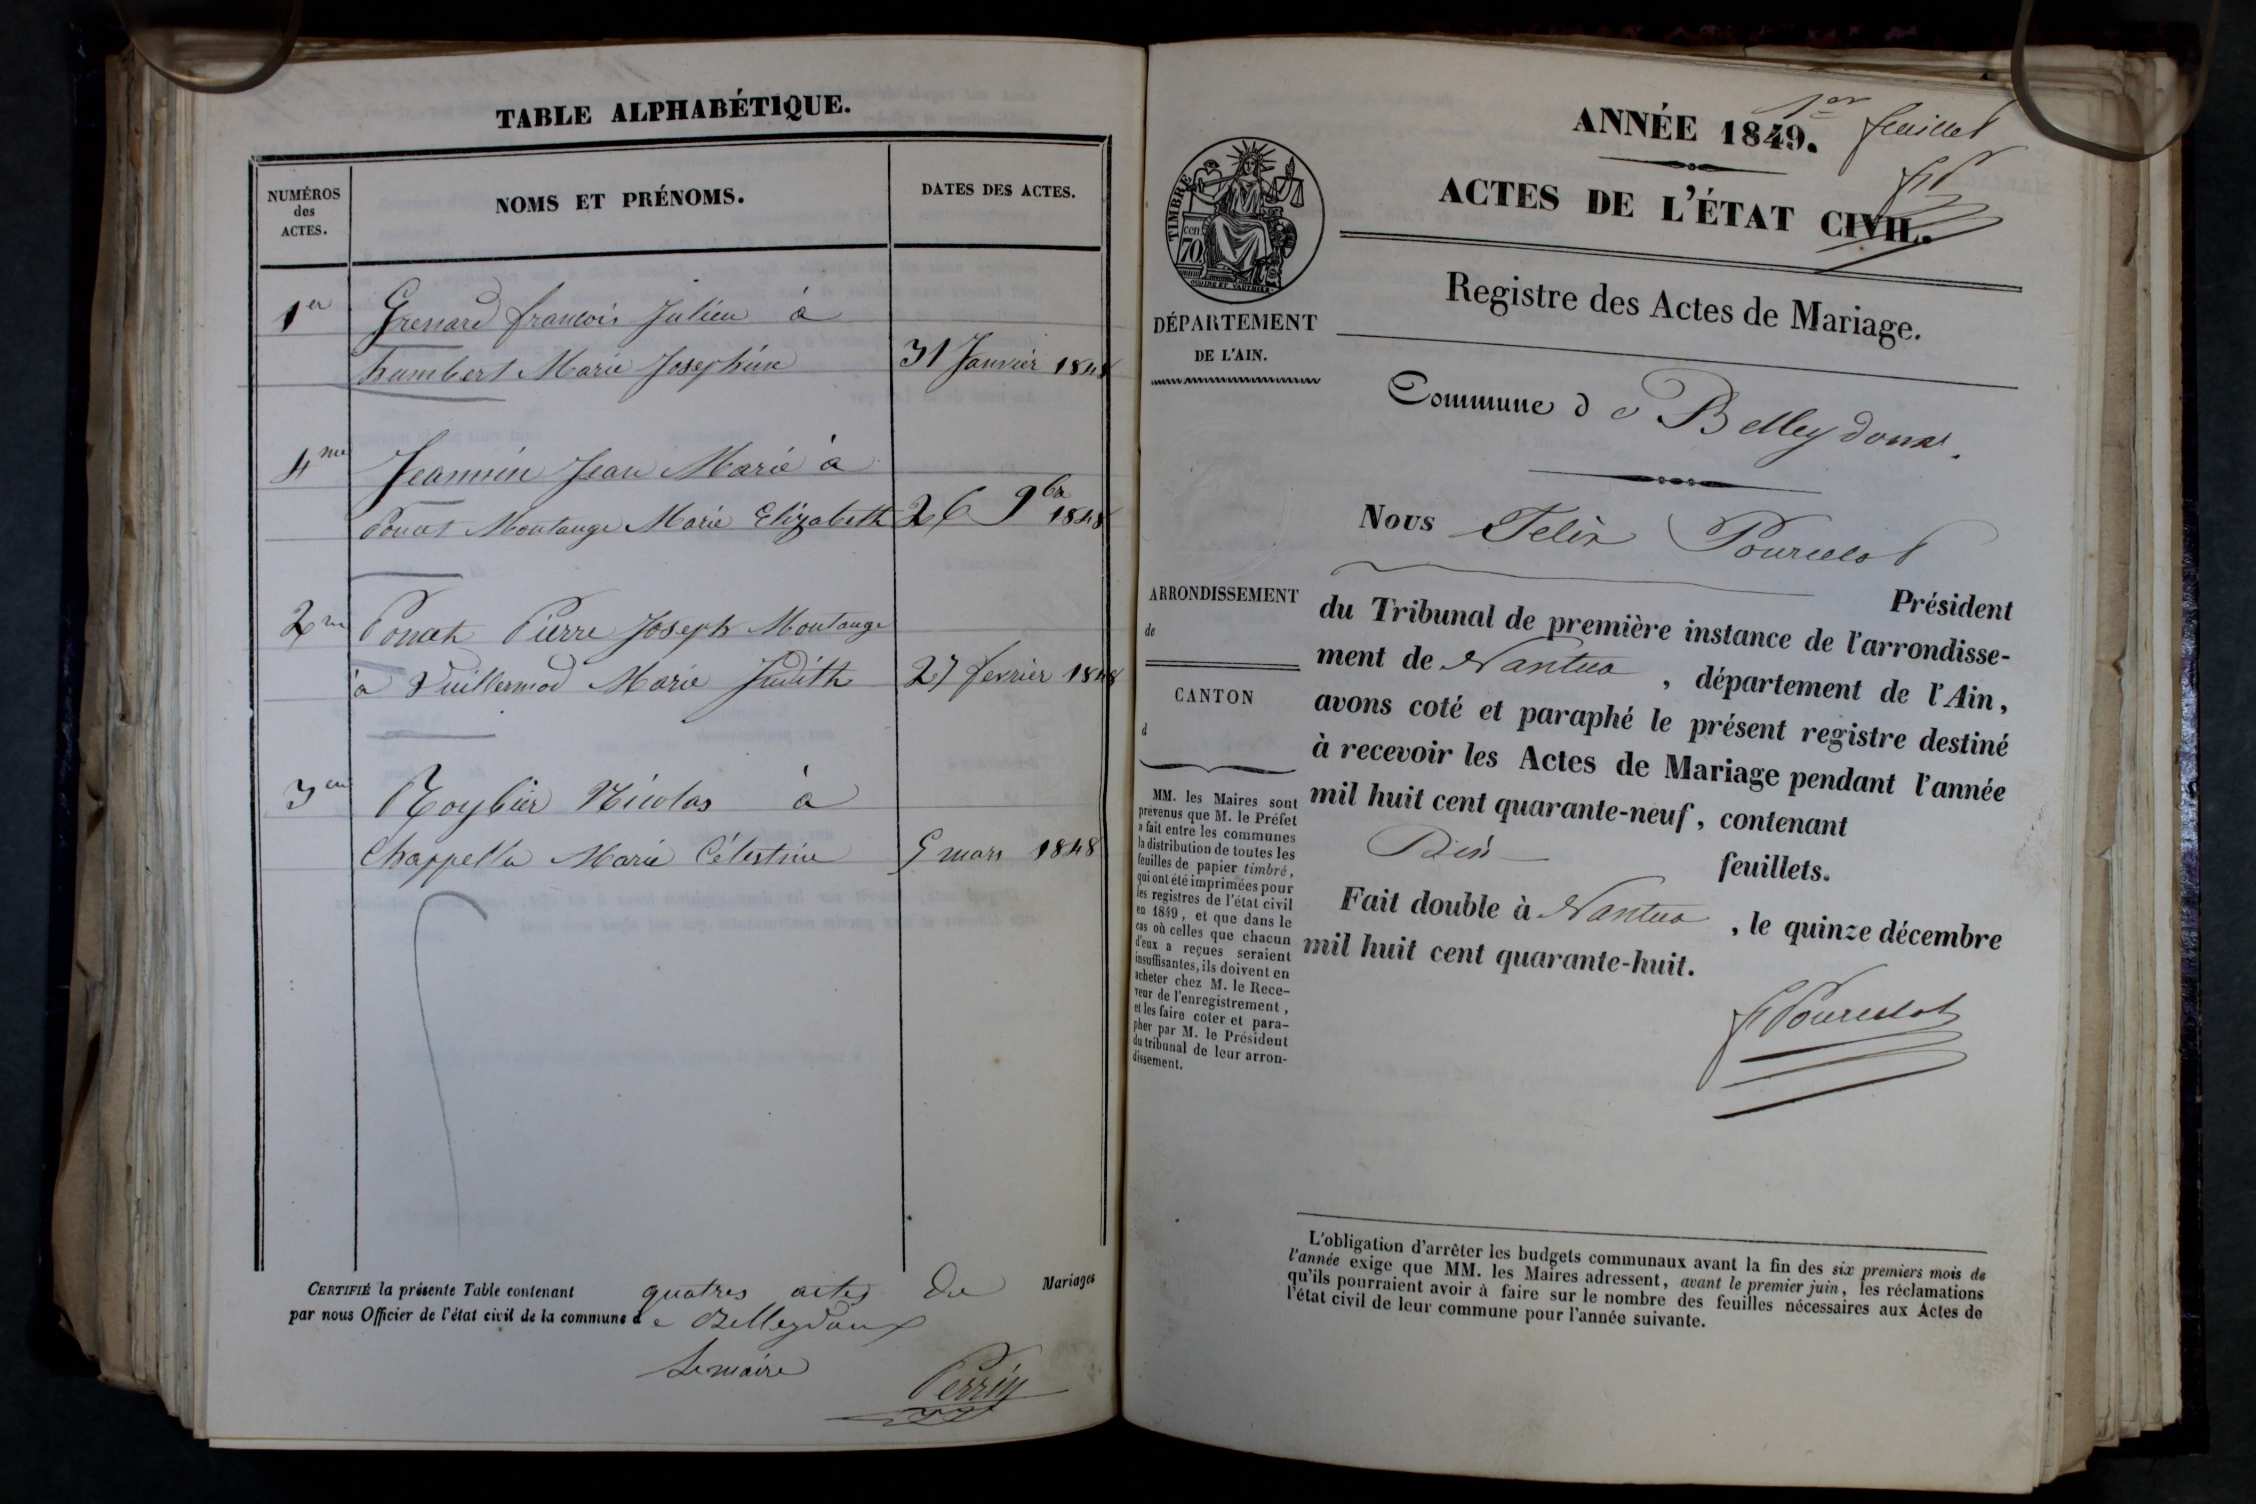 TABLE ALPHABÉTIQUE.
NUMÉROS des ACTES.
NOMS ET PRÉNOMS.
DATES DES ACTES.
1er Grenard françois Julien à
humbert Marie Josephine 31 Janvier 1848
4me Jeannin Jean Marie à
Ponat Montange Marie Elizabeth 26 9bre 1848
2me Ponat Pierre Joseph Montange
à Vuillermod Marie Judith 27 fevrier 1848
3me Roybier Nicolas à
Chappella Marie Célestine 5 mars 1848
CERTIFIÉ la présente Table contenant quatres actes de Mariages
par nous Officier de l'état civil de la commune de Belleydoux
Le maire
Perrin
1er feuillet
ANNÉE 1849.
ACTES DE L'ÉTAT CIVIL.
TIMBRE
70 cen
DÉPARTEMENT
DE L'AIN.
Registre des Actes de Mariage.
Commune de Belleydoux.
Nous Felix Pourcelot
Président
ARRONDISSEMENT
de
CANTON
d
du Tribunal de première instance de l'arrondisse-
ment de Nantua, département de l'Ain,
avons coté et paraphé le présent registre destiné
à recevoir les Actes de Mariage pendant l'année
mil huit cent quarante-neuf, contenant
feuillets.
Fait double à Nantua, le quinze décembre
mil huit cent quarante-huit.
F Pourcelot
MM. les Maires sont
prévenus que M. le Préfet
a fait entre les communes
la distribution de toutes les
feuilles de papier timbré,
qui ont été imprimées pour
les registres de l'état civil
en 1849, et que dans le
cas où celles que chacun
d'eux a reçues seraient
insuffisantes, ils doivent en
acheter chez M. le Rece-
veur de l'enregistrement,
et les faire coter et para-
pher par M. le Président
du tribunal de leur arron-
dissement.
L'obligation d'arrêter les budgets communaux avant la fin des six premiers mois de
l'année exige que MM. les Maires adressent, avant le premier juin, les réclamations
qu'ils pourraient avoir à faire sur le nombre des feuilles nécessaires aux Actes de
l'état civil de leur commune pour l'année suivante.